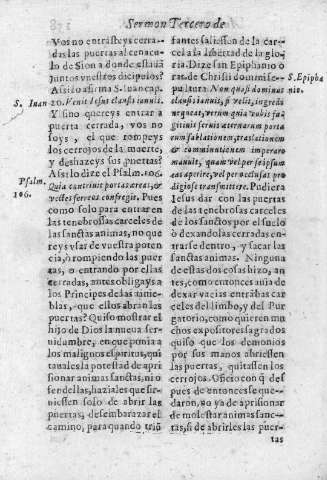 Sermon Tercero de
Vos no entrasteys cerra-
das puertas al cenacu-
lo de Sion a donde estauã
juntos vuestros dicipulos?
Assi lo afirma S. Iuan cap.
S. Iuan
20. Venit Iesus clausis ianuis.
Y sino quereys entrar a
puerta cerrada, vos no
soys, el que rompeys
los cerrojos de la muerte,
y deshazeys sus puertas?
Assi lo dize el Psalm. 106.
Psalm.
106.
Quia contriuit portas æreas, &
vectes ferreos confregit. Pues
como solo para entrar en
las tenebrossas carceles de
las sanctas animas, no que
reys vsar de vuestra poten
cia, ò rompiendo las puer
tas, o entrando por ellas
cerradas, antes obligays a
los Principes de las tinie-
blas, que estos abran las
puertas? Quiso mostrar el
hijo de Dios la nueua ser-
uidumbre, en que ponia a
los malignos espiritus, qui
tauales la potestad de apri
sionar animas sanctas, ni o
fendellas, haziales que sir-
uiessen solo de abrir las
puertas, desembarazar el
camino, para quando triũ
fantes saliessen de la car-
cel a la libertad de la glo-
ria. Dize san Epiphanio o
rat. de Christi domini se-
S. Epipha
nio.
pultura. Non quasi dominus
clausis ianuis, si velit, ingredi
nequeat, verum quia vobis fu-
gitiuis seruis æternarum porta
rum sublationem, traslationem
& comminutionem imperare
manult, quam vel per se ipsum
eas aperire, vel per occlusas pro
digiose transmittere. Pudiera
Iesus dar con las puertas
de las tenebrosas carceles
de los sanctos por el suelo
ò dexandolas cerradas en
trarse dentro, y sacar las
sanctas animas. Ninguna
de estas dos cosas hizo, an
tes, como entonces auia de
dexar vacias entrãbas car
celes del limbo, y del Pur
gatorio, como quieren mu
chos expositores sagrados
quiso que los demonios
por sus manos abriessen
las puertas, quitassen los
cerrojos. Officio con q̃ des
pues de entonces se que-
daron, no ya de aprisionar
de molestar animas sanc-
tas, si de abrirles las puer-
tas